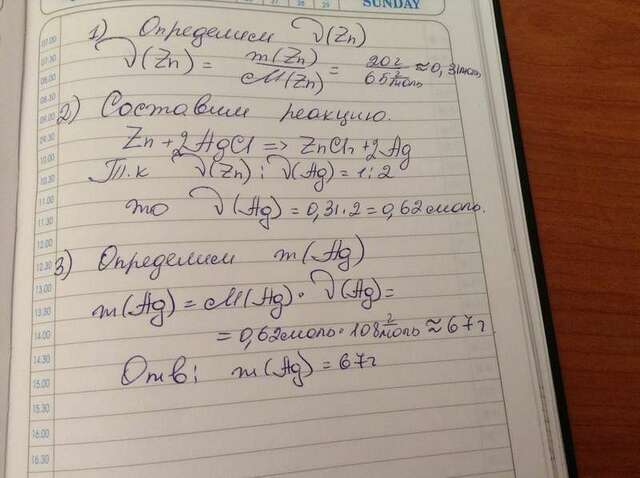 SUNDAY
07.00
07.30
08.00
08.30
09.00
09.30
10.00
10.30
11.00
11.30
12.00
12.30
13.00
13.30
14.00
14.30
15.00
15.30
16.00
16.30
1) Определим ν(Zn)
ν(Zn) = m(Zn)/M(Zn) = 20г/65г/моль ≈ 0,31моль
2) Составим реакцию.
Zn + 2AgCl => ZnCl₂ + 2Ag
Т.к ν(Zn) : ν(Ag) = 1:2
то ν(Ag) = 0,31·2 = 0,62моль.
3) Определим m(Ag)
m(Ag) = M(Ag) · ν(Ag) =
= 0,62моль · 108г/моль ≈ 67г
Отв: m(Ag) = 67г